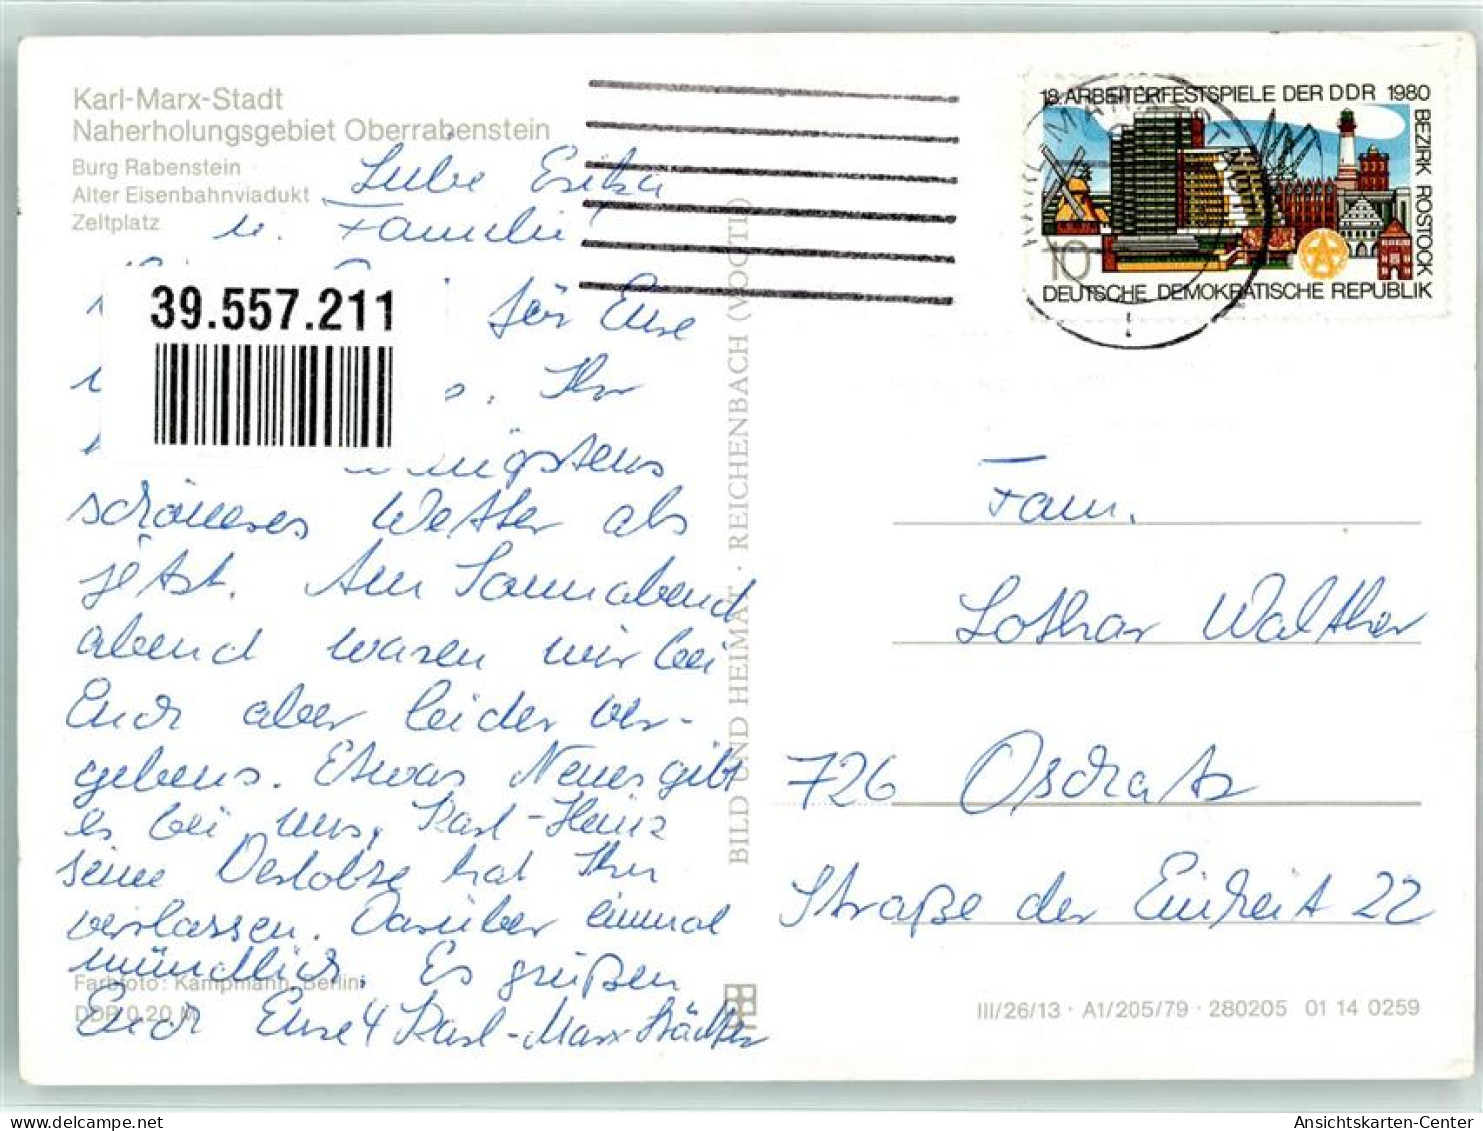 Karl-Marx-Stadt
Naherholungsgebiet Oberrabenstein
Burg Rabenstein
Alter Eisenbahnviadukt
Zeltplatz
18. ARBEITERFESTSPIELE DER DDR 1980
BEZIRK ROSTOCK
10
DEUTSCHE DEMOKRATISCHE REPUBLIK
Liebe Erika
u. Familie
39.557.211
für Eure
Ihr
schöneres Wetter als
jetzt. Am Sonnabend
abend waren wir bei
Euch aber leider ver-
gebens. Etwas Neues gibt
es bei uns, Karl-Heinz
seine Verlobte hat Ihn
verlassen. Darüber einmal
mündlich, Es grüßen
Euch Eure 4 Karl-Marx-Städter
Farbfoto: Kampmann, Berlin
DDR 0,20 M
BILD UND HEIMAT · REICHENBACH (VOGTL)
Fam.
Lothar Walther
726 Oschatz
Straße der Einheit 22
III/26/13 · A1/205/79 · 280205 01 14 0259
Ansichtskarten-Center